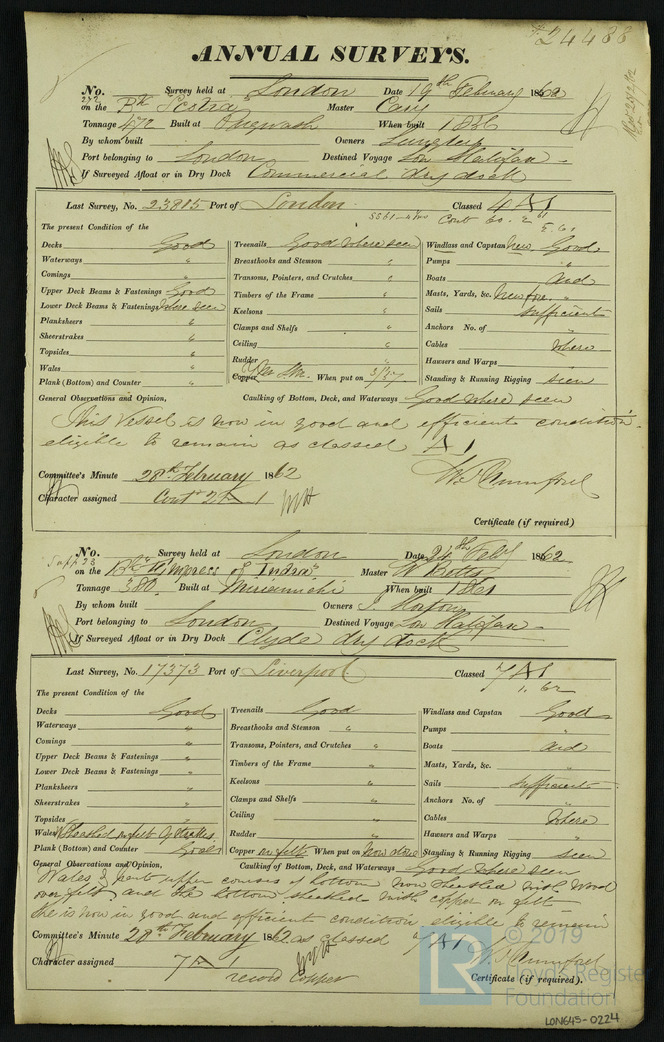 24488
ANNUAL SURVEYS.
No. Survey held at London Date 19th February 1862
272 on the Bk Master
Tonnage 472 Built at When built 1836
By whom built Owners
Port belonging to London Destined Voyage Lon Halifax
If Surveyed Afloat or in Dry Dock Commercial dry dock
Last Survey, No. 23815 Port of London Classed 4 A1
Cont 60. 2
The present Condition of the
Decks Good Treenails Good where seen Windlass and Capstan New Good
Waterways " Breasthooks and Stemson " Pumps "
Comings " Transoms, Pointers, and Crutches " Boats and
Upper Deck Beams & Fastenings Good Timbers of the Frame " Masts, Yards, &c. New fore "
Lower Deck Beams & Fastenings where seen Keelsons " Sails sufficient
Planksheers " Clamps and Shelfs " Anchors No. of "
Sheerstrakes " Ceiling " Cables where
Topsides " Rudder " Hawsers and Warps "
Wales " Copper When put on 3/57 Standing & Running Rigging seen
Plank (Bottom) and Counter " Caulking of Bottom, Deck, and Waterways Good where seen
General Observations and Opinion,
This Vessel is now in good and efficient condition.
eligible to remain as classed A1
Committee's Minute 28th February 1862
Character assigned Cont 2 A 1
Certificate (if required)
No. Survey held at London Date 24th Feby 1862
Supp 23 on the Bk "Empress of India" Master W Betts
Tonnage 380. Built at Miramichi When built 1861
By whom built Owners
Port belonging to London Destined Voyage Lon Halifax
If Surveyed Afloat or in Dry Dock Clyde dry dock
Last Survey, No. 17373 Port of Liverpool Classed 7 A1
1. 62
The present Condition of the
Decks Good Treenails Good Windlass and Capstan Good
Waterways " Breasthooks and Stemson " Pumps "
Comings " Transoms, Pointers, and Crutches " Boats and
Upper Deck Beams & Fastenings " Timbers of the Frame " Masts, Yards, &c. "
Lower Deck Beams & Fastenings " Keelsons " Sails sufficient
Planksheers " Clamps and Shelfs " Anchors No. of "
Sheerstrakes " Ceiling " Cables where
Topsides " Rudder " Hawsers and Warps "
Wales Sheathed on felt Copper on felt When put on Now done Standing & Running Rigging seen
Plank (Bottom) and Counter Good Caulking of Bottom, Deck, and Waterways Good where seen
General Observations and Opinion,
Wales & part upper courses of bottom now sheathed with Wood
over felt, and the bottom sheathed with copper on felt
She is now in good and efficient condition, eligible to remain
as classed 7 A1
Committee's Minute 28th February 1862
Character assigned 7 A 1
record Copper
Certificate (if required).
© 2019
Lloyd's Register
Foundation
LR
LON645-0224